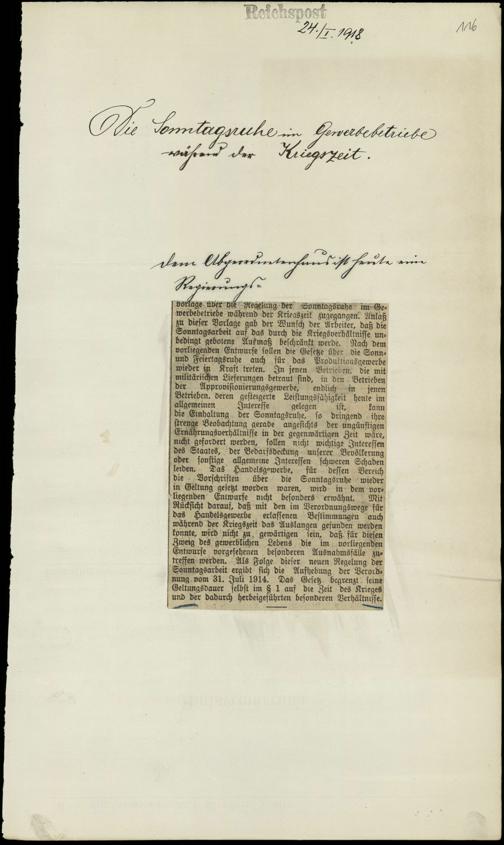 Reichspost
24./I. 1918
116
Die Sonntagsruhe im Gewerbebetriebe
während der Kriegszeit.
Dem Abgeordnetenhaus ist heute eine
Regierungs-
vorlage über die Regelung der Sonntagsruhe im Ge-
werbebetriebe während der Kriegszeit zugegangen. Anlaß
zu dieser Vorlage gab der Wunsch der Arbeiter, daß die
Sonntagsarbeit auf das durch die Kriegsverhältnisse un-
bedingt gebotene Ausmaß beschränkt werde. Nach dem
vorliegenden Entwurfe sollen die Gesetze über die Sonn-
und Feiertagsruhe auch für das Produktionsgewerbe
wieder in Kraft treten. In jenen Betrieben, die mit
militärischen Lieferungen betraut sind, in den Betrieben
der Approvisionierungsgewerbe, endlich in jenen
Betrieben, deren gesteigerte Leistungsfähigkeit heute im
allgemeinen Interesse gelegen ist, kann
die Einhaltung der Sonntagsruhe, so dringend ihre
strenge Beobachtung gerade angesichts der ungünstigen
Ernährungsverhältnisse in der gegenwärtigen Zeit wäre,
nicht gefordert werden, sollen nicht wichtige Interessen
des Staates, der Bedarfsdeckung unserer Bevölkerung
oder sonstige allgemeine Interessen schweren Schaden
leiden. Das Handelsgewerbe, für dessen Bereich
die Vorschriften über die Sonntagsruhe wieder
in Geltung gesetzt worden waren, wird in dem vor-
liegenden Entwurfe nicht besonders erwähnt. Mit
Rücksicht darauf, daß mit den im Verordnungswege für
das Handelsgewerbe erlassenen Bestimmungen auch
während der Kriegszeit das Auslangen gefunden werden
konnte, wird nicht zu gewärtigen sein, daß für diesen
Zweig des gewerblichen Lebens die im vorliegenden
Entwurfe vorgesehenen besonderen Ausnahmsfälle zu-
treffen werden. Als Folge dieser neuen Regelung der
Sonntagsarbeit ergibt sich die Aufhebung der Verord-
nung vom 31. Juli 1914. Das Gesetz begrenzt seine
Geltungsdauer selbst im § 1 auf die Zeit des Krieges
und der dadurch herbeigeführten besonderen Verhältnisse.